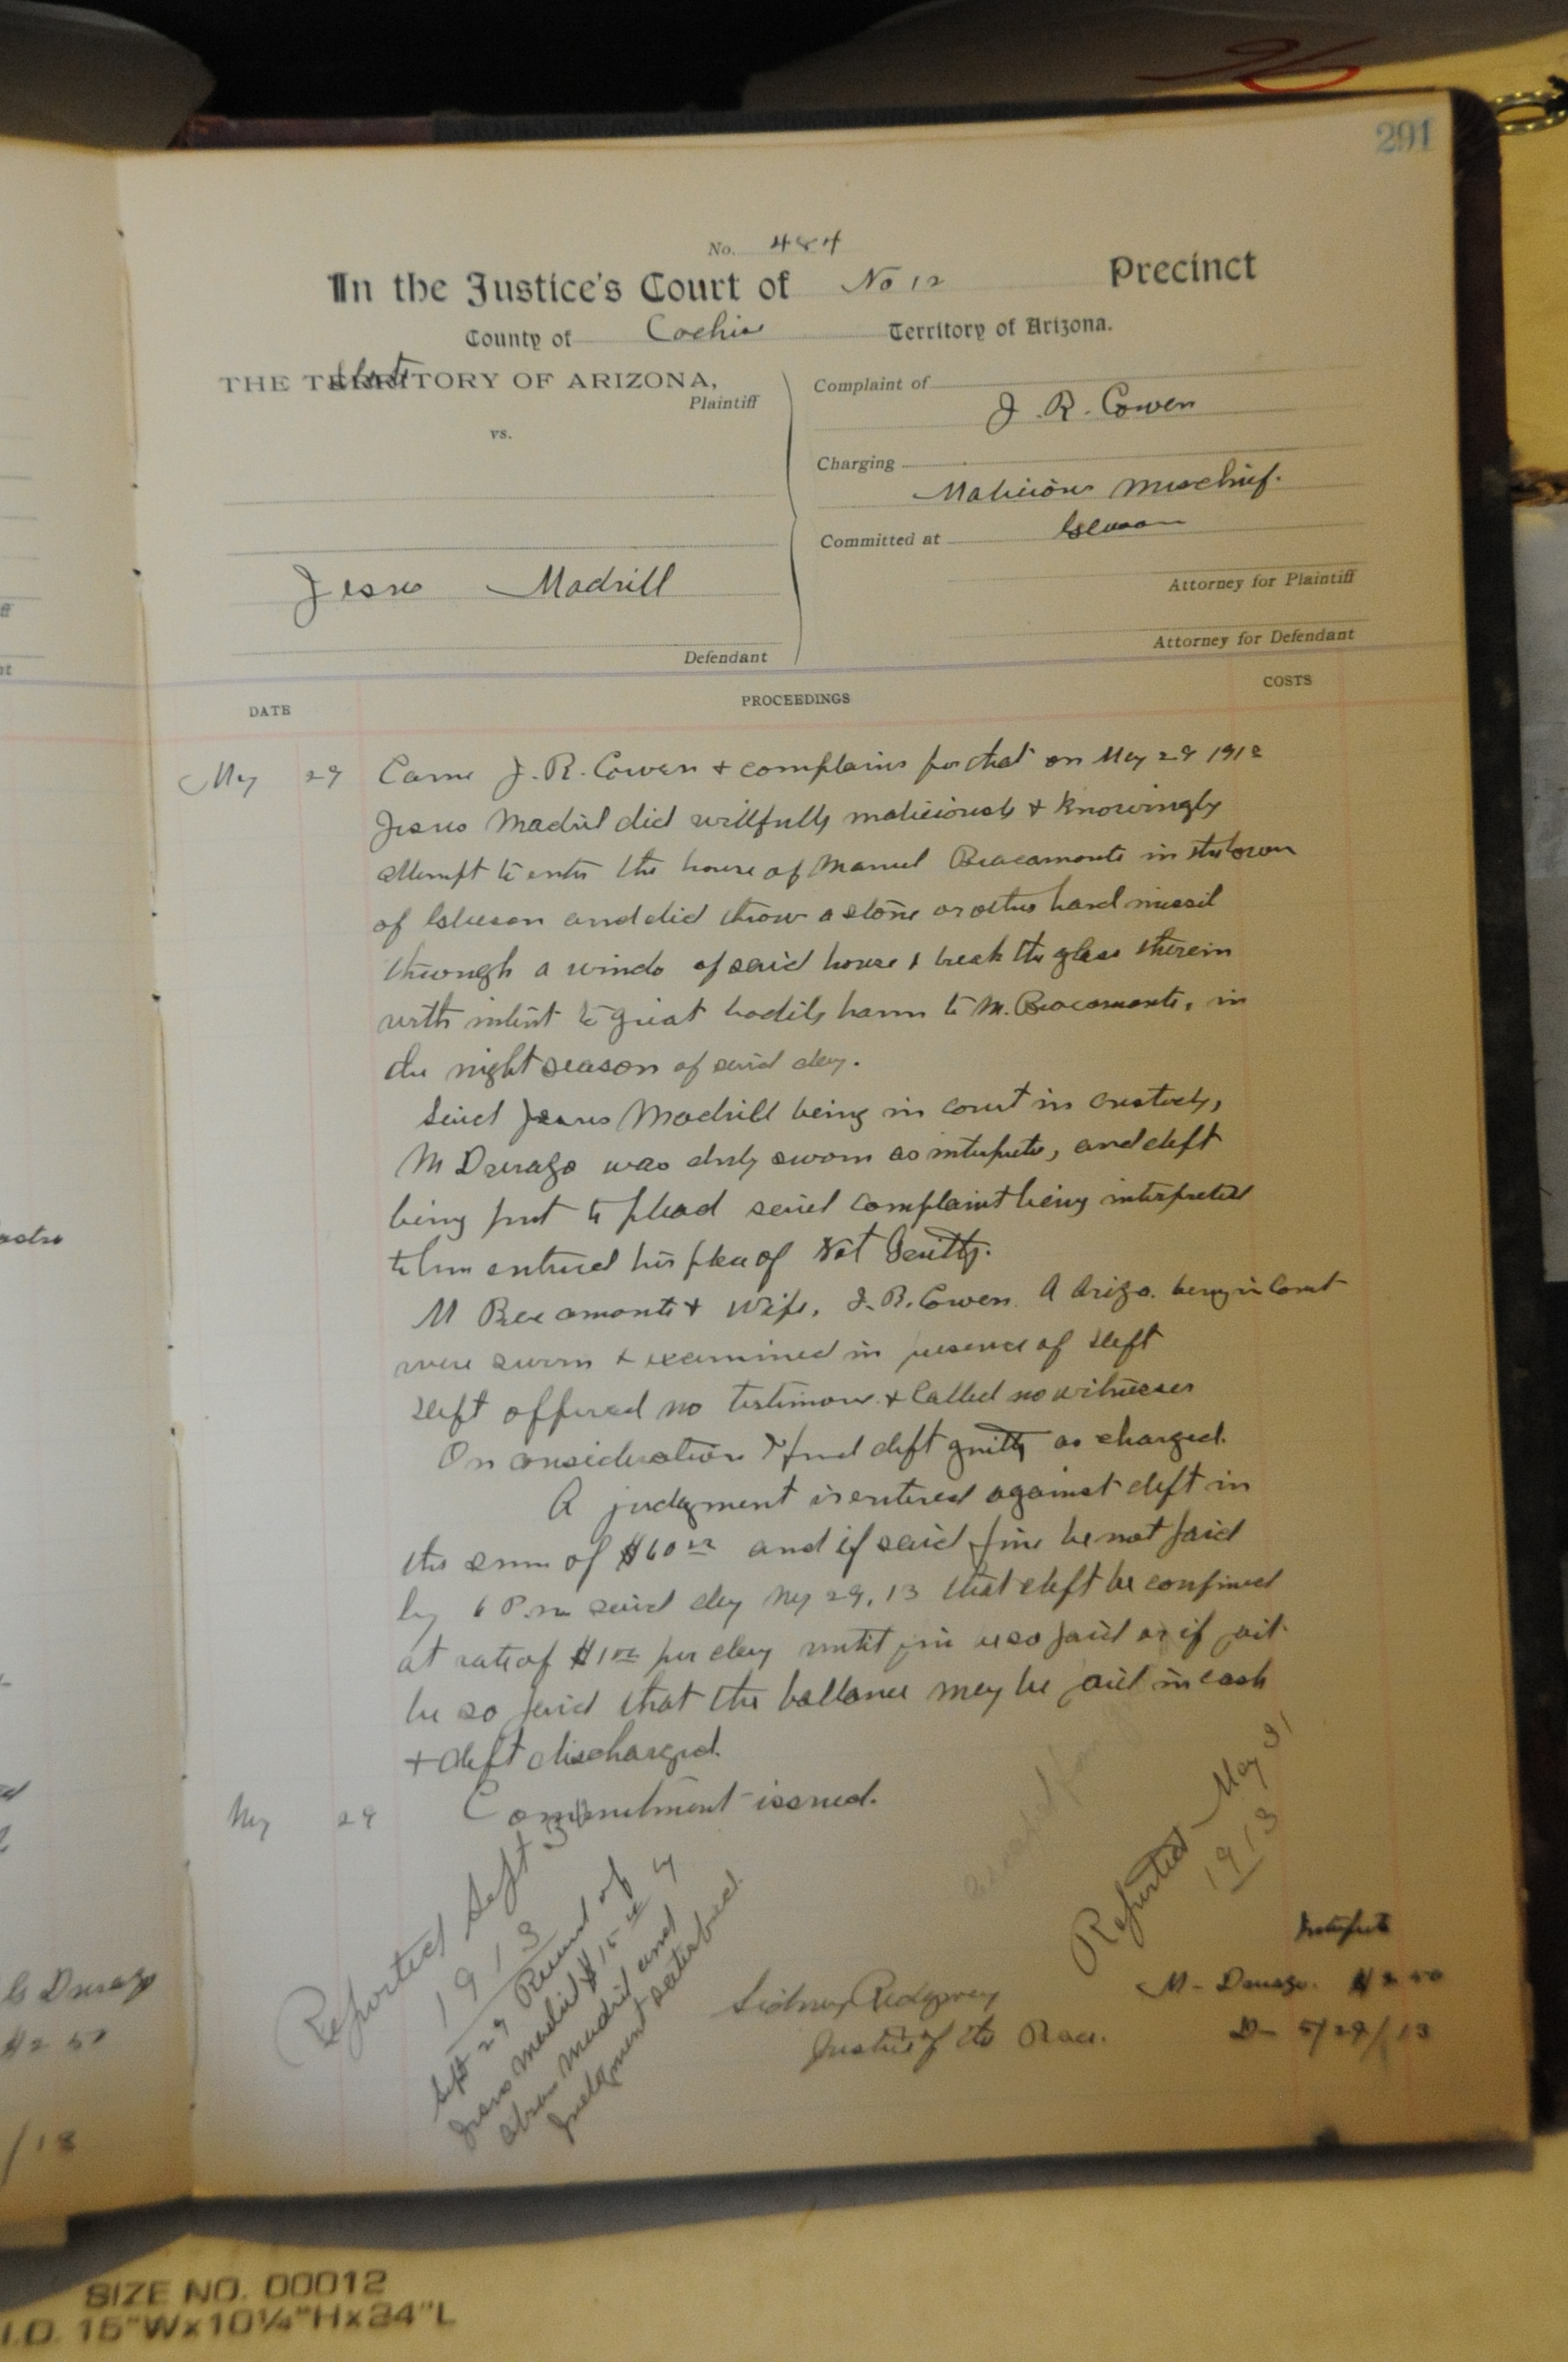 291
No. 484
In the Justice's Court of No 12 Precinct
County of Cochise Territory of Arizona.
State
THE TERRITORY OF ARIZONA,
Plaintiff
vs.
Jesus Madrill
Defendant
Complaint of
J. R. Cowen
Charging
Malicious Mischief.
Committed at Gleeson
Attorney for Plaintiff
Attorney for Defendant
DATE PROCEEDINGS COSTS
May 29 Came J. R. Cowen + complains for that on May 29 1913
Jesus Madril did willfully maliciously + knowingly
attempt to enter the house of Manuel Bracamonte in the town
of Gleeson and did throw a stone or other hard missil
through a windo of said house & break the glass therein
with intent to great bodily harm to M. Bracamonte, in
the night season of said day.
Said Jesus Madrill being in court in custody,
M Durazo was duly sworn as interpreter, and deft
being put to plead said complaint being interpreted
to him entered his plea of Not Guilty.
M Bracamonte + wife, J. R. Cowen. A Arizo. being in Court
were sworn + examined in presence of deft
Deft offered no testimony + Called no witnesses
On consideration I find deft guilty as charged.
A judgment is entered against deft in
the sum of $60 00 and if said fine be not paid
by 6 P.m said day My 29, 13 that deft be confined
at rate of $1 00 per day until fine is so paid or if part
be so paid that the ballance may be paid in cash
+ deft discharged.
My 29 Commitment issued.
Reported Sept 30
1913
Sept 29 Received of
Jesus Madril $15
Judgment satisfied.
Reported May 31
1913
Sidney Ridgway
Justice of the Peace.
Interpreter
M- Durazo. $2 50
D- 5/29/13
Durazo
$2 50
/13
SIZE NO. 00012
I.D. 15"Wx10¼"Hx24"L